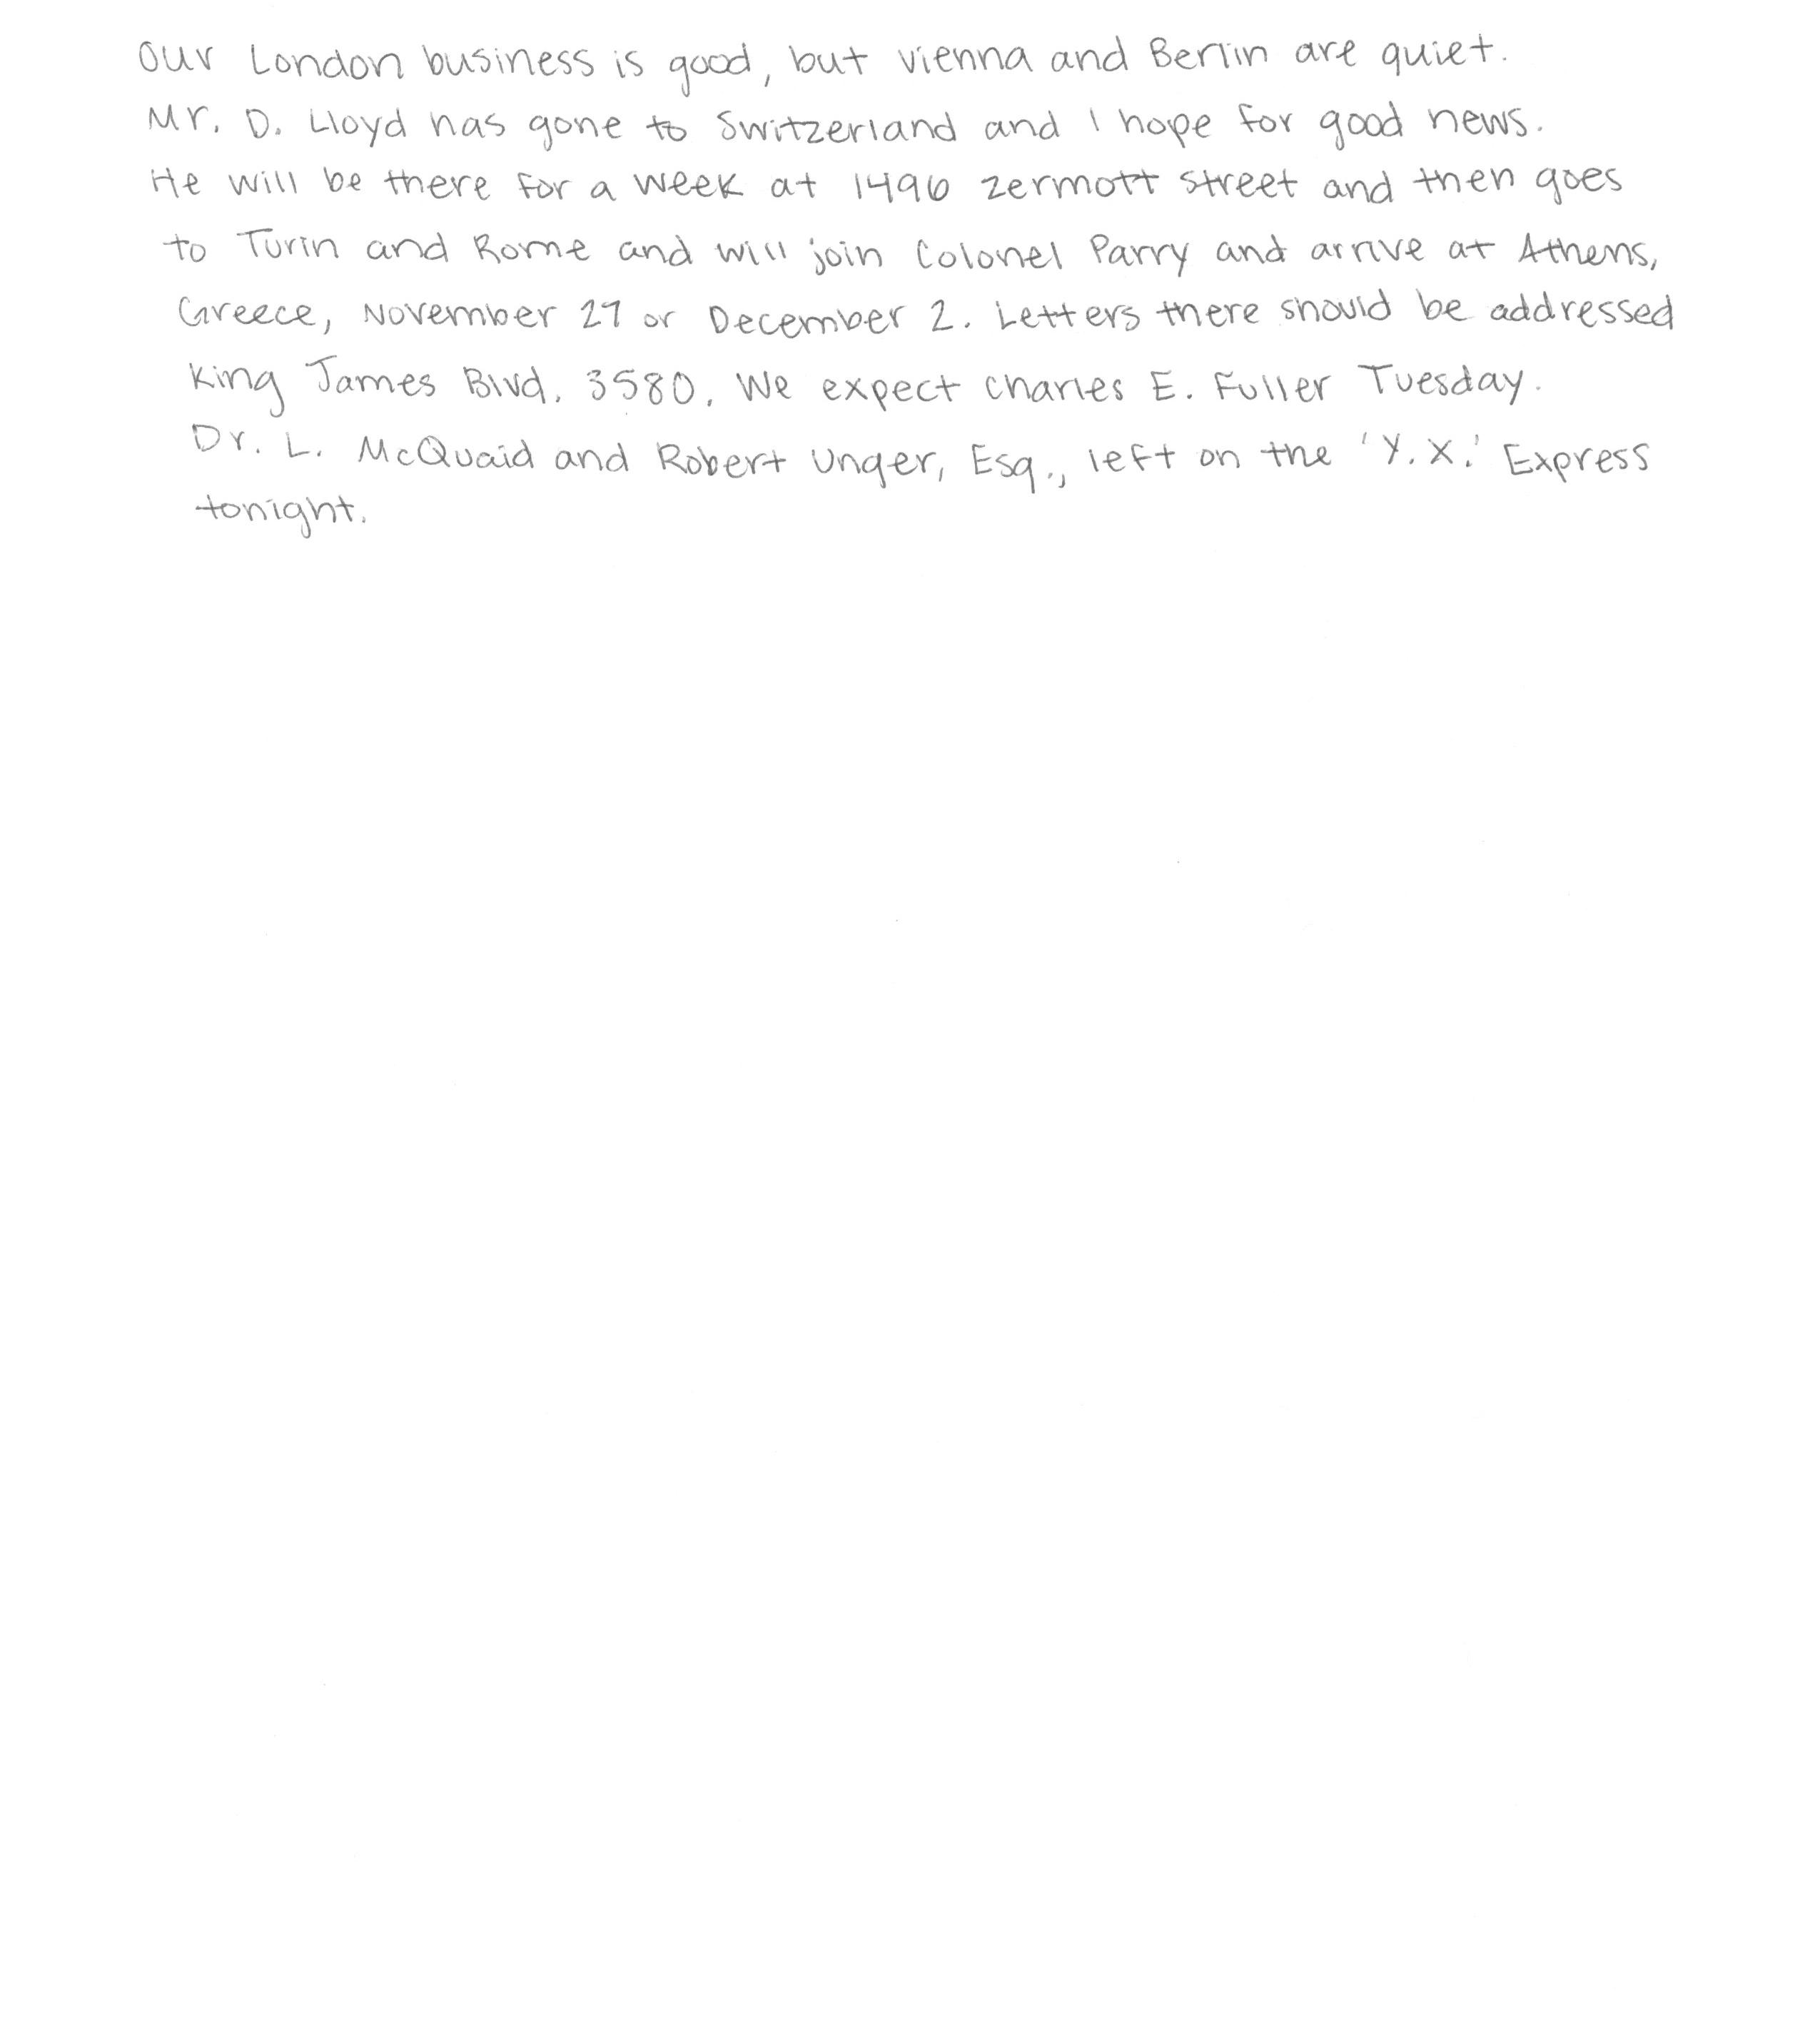 Our London business is good, but Vienna and Berlin are quiet.
Mr. D. Lloyd has gone to Switzerland and I hope for good news.
He will be there for a week at 1496 Zermott Street and then goes
to Turin and Rome and will join Colonel Parry and arrive at Athens,
Greece, November 27 or December 2. Letters there should be addressed
King James Blvd. 3580. We expect Charles E. Fuller Tuesday.
Dr. L. McQuaid and Robert Unger, Esq., left on the 'Y.X.' Express
tonight.